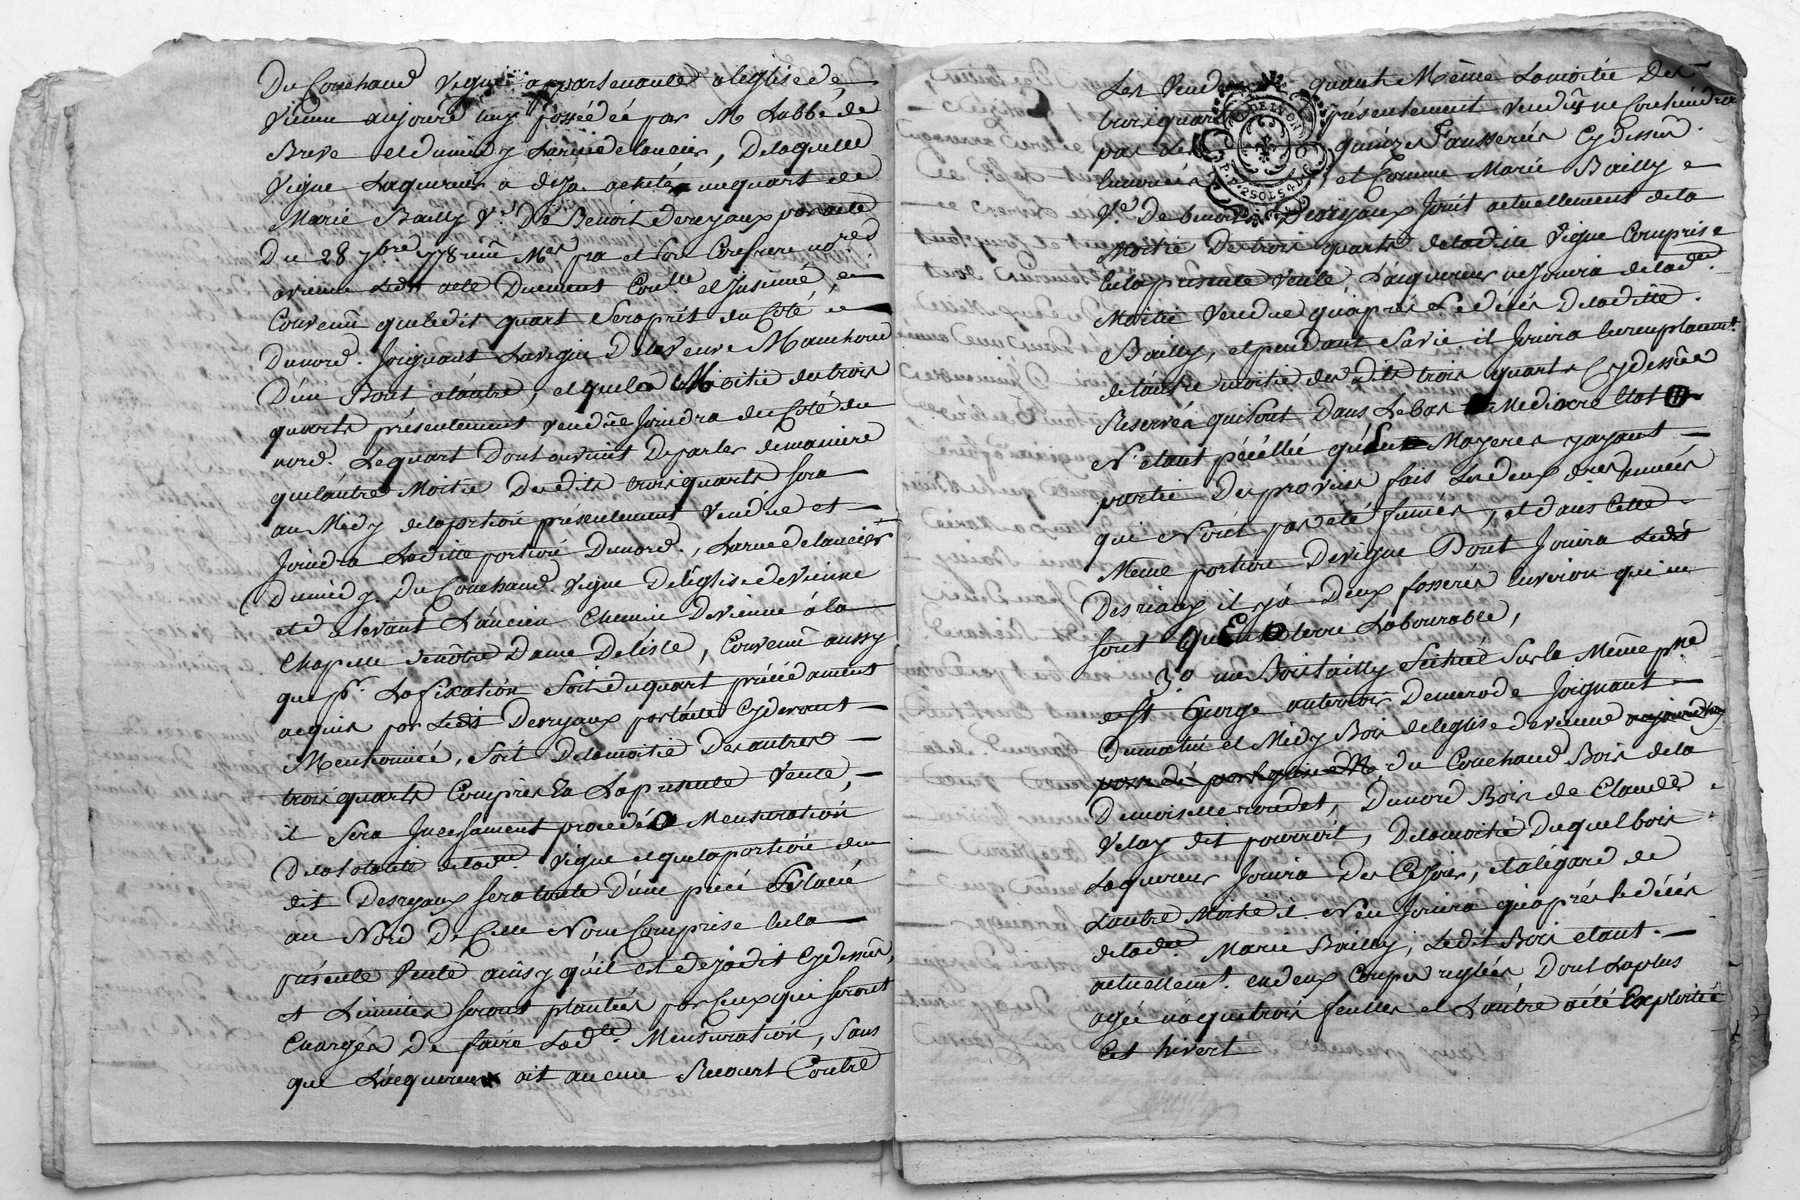 Du Couchand Vigne appartenante a léglise de
Vienne aujourd'huy possédée par M Labbé de
Breve et du midy La rue de lancier, De laquelle
Vigne Laquereur a deja acheté un quart de
Marie Bailly V.e De Benoit Desryaux par acte
Du 28 7bre 1778 reçu M.e pra et son Confrere no.res
a vienne Ledit acte Duement Con.lle et Insinué,
Convenu que ledit quart sera pris du Coté
du nord. Joignant La vigne De la Veuve Manchon
D'un Bout a lautre, et que la Moitié des trois
quarts présentement vendüe Joindra du Coté du
nord. Le quart Dont on vient De parler de maniere
que l'autre Moitié Desdits trois quarts sera
au Midy de la portion présentement Vendüe et
Joindra Laditte portion Du nord, La rue de lancier
Du midy Du Couchand Vigne De léglise de Vienne
et de levant L'ancien Chemin De vienne á la
Chapelle de nôtre Dame De lisle, Convenu aussy
que p.r La fixation Soit du quart précédament
acquis par Ledit Desryaux par lacte Cydevant
Mentionné, Soit De la moitié Des autres
trois quarts Compris En La presente Vente,
il Sera Incessament procédé a Mensuration
De la totalité de lad.e Vigne et que la portion du
dit Desryaux sera toute D'une piece Et placée
au Nord De Celle Non Comprise En la
présente Vente ainsy qu'il est deja dit Cydessus,
et Limites seront plantées par Ceux qui seront
Chargés De faire Lad.te Mensuration, Sans
que L'acquereur ait aucun Recourt Contre
Les Vendeurs quant Même La moitié Des
trois quarts présentement Vendus ne Contiendra
pas Les quinze Fausserées Cydessus
Enoncées et Comme Marie Bailly
V.e De benoit Desryaux Jouit actuellement de la
Moitié Des trois quarts de ladite Vigne Comprise
en la présente Vente, L'acquereur ne Jouira de lad.e
Moitié Vendue qu'après Le décès De laditte
Bailly, et pendant Sa vie il Jouira En remplacem.t
de l'autre moitié des Dits trois quarts Cydessus
Reservés qui sont Dans Le bas Mediocre Etat
N'étant peuplée qu'En Mayeres yayant
partie Des provins fais Les deux dres années
qui N'ont pas été fumés, et dans Cette
Même portion De vigne Dont Jouira Ledit
Desriaux il y a Deux fosserés Environ qui ne
sont qu'En terre Labourable,
3.o un Bois tailly Scitué Sur le Même p.ne
de St George au terroir De merode Joignant
Du matin et Midy Bois de léglise de vienne aujourd'huy
possédé par léglise de M.r du Couchand Bois de la
Demoiselle roudet, Du nord Bois de Claude
Velay dit pourroit, De la moitié Duquel bois
Laquereur Jouira Des Cejour, et a légard de
Lautre Moitié il N'en Jouira qu'après le décès
de lad.e Marie Bailly, Ledit Bois étant
actuellem.t en deux Coupes reglées Dont La plus
agée n'a que trois feuilles et L'autre a été Exploitée
Cet hivert